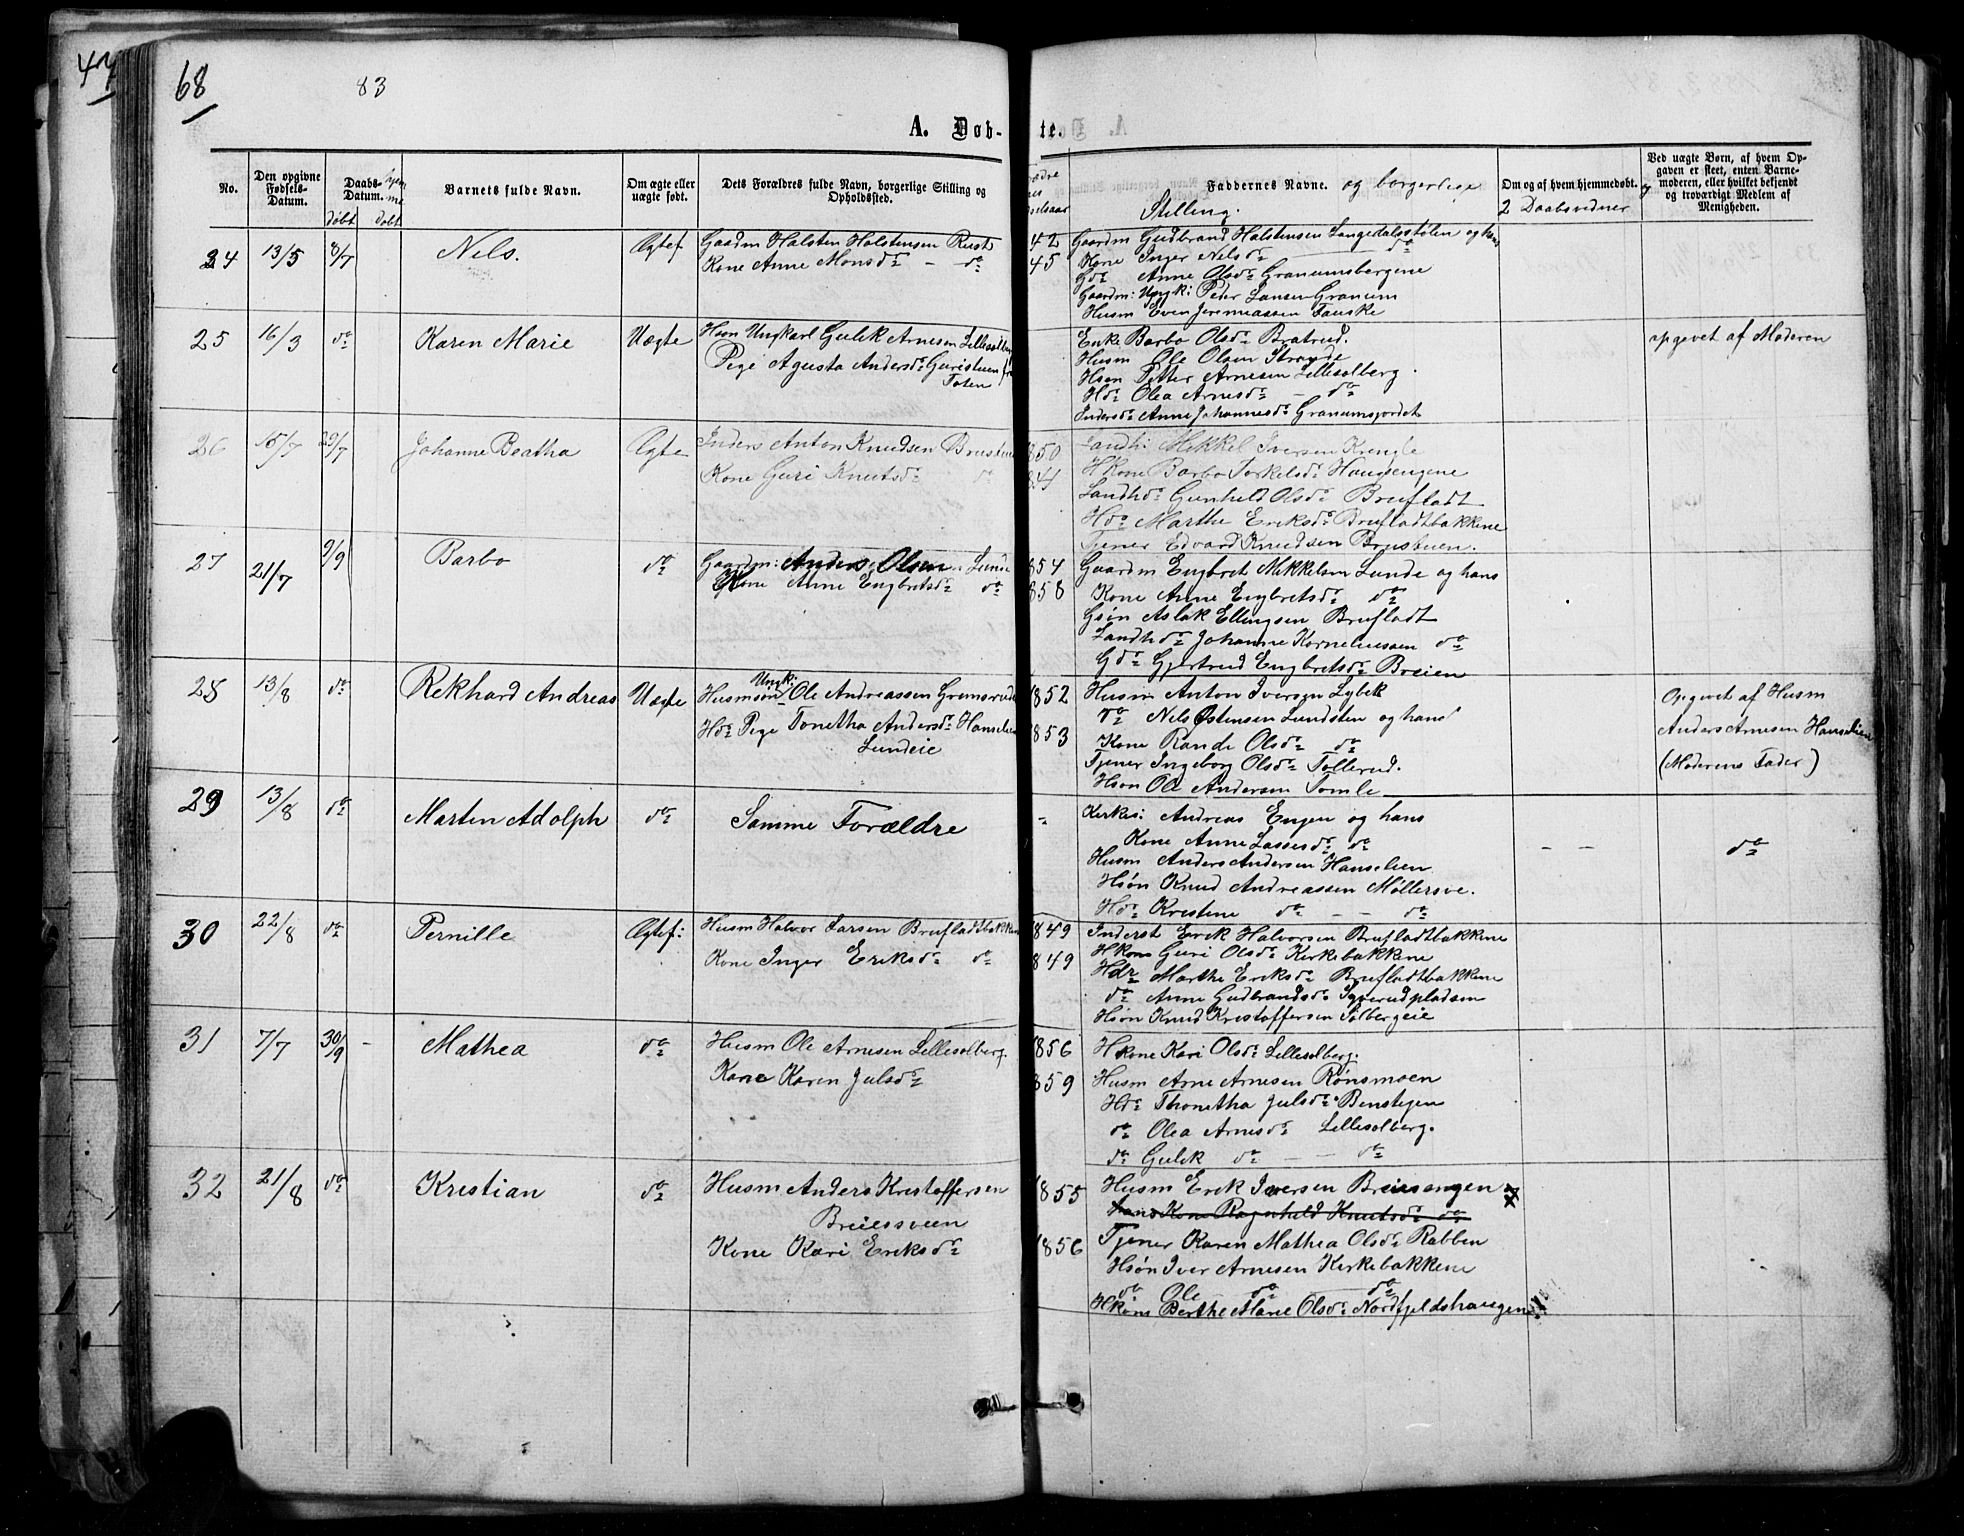 47
68
83
A. Døb-
te.
No.
Den opgivne Fødsels-Datum.
Daabs-Datum.
døbt
døbt
Barnets fulde Navn.
Om ægte eller uægte født.
Dets Forældres fulde Navn, borgerlige Stilling og Opholdssted.
Faddernes Navne. og borgerlige
Stilling.
Om og af hvem hjemmedøbt. og
2 Daabsvidner
Ved uægte Børn, af hvem Opgaven er skeet, enten Barnemoderen, eller hvilket bekjendt og troværdigt Medlem af Menigheden.
24 13/5 8/7 Nels. Ægtef Gaardm Halsten Halstensen Rust
Kone Anne Monsdr - do
42
45
Gaardm Gudbrand Halstensen Langedalsstølen og hans
Kone Inger Nelsdr do
Gdr Anne Olsdr Granumsbergene
Gaardm: Ungk: Peder Larsen Granum
Husm Even Jeremiassen Fauske
25 16/3 do Karen Marie Uægte Hson Ungkarl Gulik Arnesen Lillesolberg
Pige Agusta Andersdr Guristuen fra
Toten
Enke Barbo Olsdr Bratrud.
Husm Ole Olsen Strande
Hson Petter Arnesen Lillesolberg.
Hdr Olea Arnesdr - do
Indersdr Anne Johannesdr Granumsjordet
opgevet af Moderen
26 15/7 29/7 Johanne Beatha Ægte Inders Anton Knudsen Brustuen
Kone Guri Knutsdr do
850
841
Landh: Mekkel Iversen Krengle
HKone Barbo Torkelsdr Haugsengene
Landhdr Gunhild Olsdr Brufladt
Hdr Marthe Eriksdr Brufladtbakkene
Tjener Edvard Knudsen Brustuen.
27 21/7 9/9 Barbo do Gaardm: Anders Olsen Lunde
Kone Anne Engbretsdr do
854
858
Gaardm Engbret Mekkelsen Lunde og hans
Kone Anne Engbretsdr do
Gsøn Aslak Ellingsen Brufladt
Landhdr Johanne Korneliussen do
Gdr Gjertrud Engbretsdr Breien
28 13/8 do Rekhard Andreas Uægte Husmsøn Ungk: Ole Andreassen Gremsrude
Hdr Pige Tonetha Andersdr Hanselien
Lundeie
1852
853
Husm Anton Iversen Lybek
do Nels Østensen Lundsten og hans
Kone Rande Olsdr do
Tjener Ingeborg Olsdr Tollerud.
Hson Ole Andersen Tomle
Opgevet af Husm
Anders Arnesen Hanselien
(Moderens Fader)
29 13/8 do Marten Adolph do Samme Forældre
-
Kirkes: Andreas Engen og hans
Kone Anne Lassesdr do
Husm Anders Andersen Hanselien
Hsøn Knud Andreassen Møllersve.
Hdr Kristine do - - do
- -
do
30 22/8 do Pernille Ægtef: Husm Halvor Larsen Brufladtbakken
Kone Inger Eriksdr do
1849
849
Inderst Erik Halvorsen Brufladtbakkene
HKone Guri Olsdr Kirkebakkene
Hdr Marthe Eriksdr Brufladtbakkene
do Anne Gudbrandsdr pladsen
Hsøn Knud Kristoffersen Solbergeie
31 7/7 30/9 - Mathea do Husm Ole Arnesen Lellesolberg.
Kone Karen Julsdr
1856
859
Hkone Kari Olsdr Lellesolberg.
Husm Arne Arnesen Rønsmoen
Hdr Thonetha Julsdr Benstegen
do Olea Arnesdr Lellesolberg.
do Gulik do - - do
32 21/8 do Kristian do Husm Anders Kristoffersen
Breiesveen
Kone Kari Eriksdr
1855
1856
Husm Erik Iversen Breiesengen
hans Kone Ragnhild Knutsdr do
Tjener Karen Mathea Olsdr Rabben
Hsøn Iver Arnesen Kirkebakkene
do Ole do do
Hkone Berthe Marie Olsdr Nordfjeldshaugen